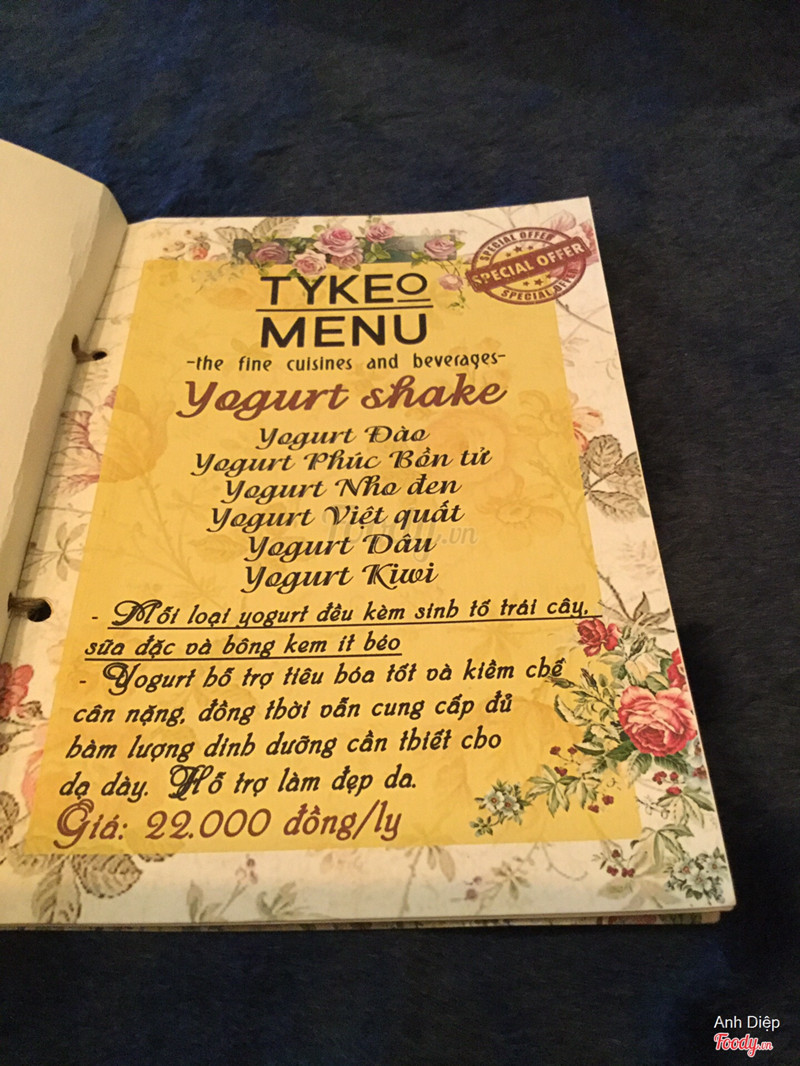 SPECIAL OFFER
SPECIAL OFFER
SPECIAL OFFER
TYKEO
MENU
-the fine cuisines and beverages-
Yogurt shake
Yogurt Đào
Yogurt Phúc Bồn tử
Yogurt Nho đen
Yogurt Việt quất
Yogurt Dâu
Yogurt Kiwi
- Mỗi loại yogurt đều kèm sinh tố trái cây,
sữa đặc và bông kem ít béo
- Yogurt hỗ trợ tiêu hóa tốt và kiềm chế
cân nặng, đồng thời vẫn cung cấp đủ
hàm lượng dinh dưỡng cần thiết cho
dạ dày. Hỗ trợ làm đẹp da.
Giá: 22.000 đồng/ly
Anh Diệp
Foody.vn